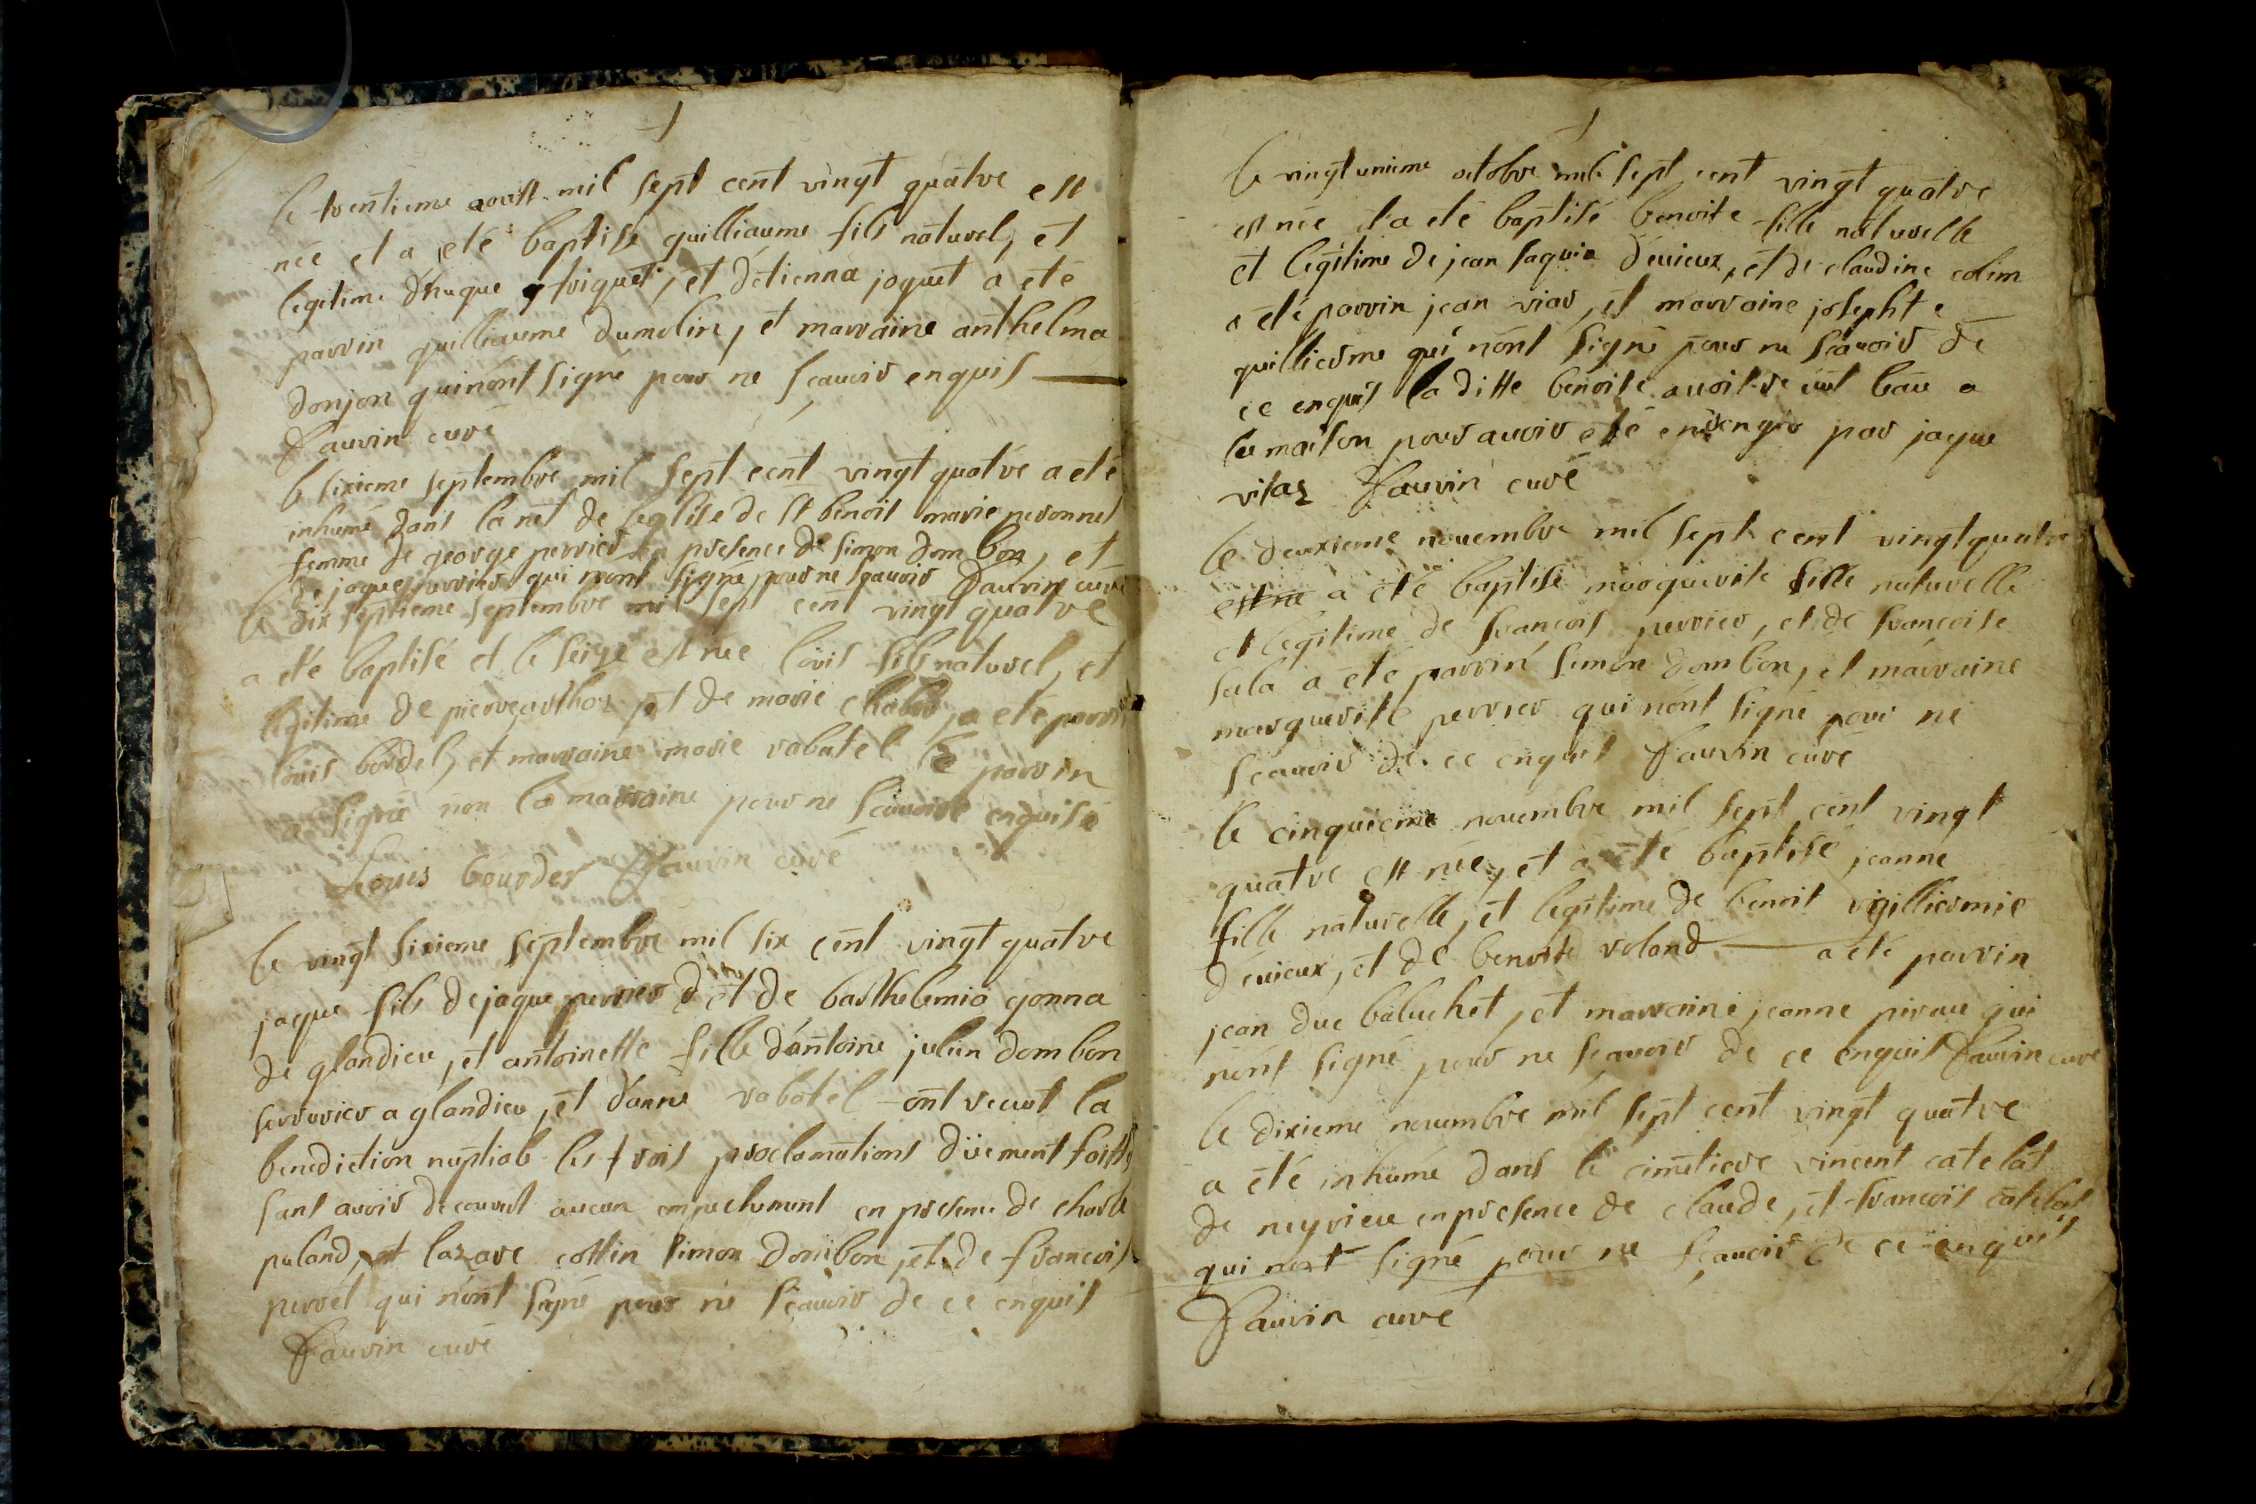 le trentieme aoust mil sept cent vingt quatre est
née et a eté baptisé guilliaume fils naturel, et
legitime d'huque triquet, et d'etienna joguet a eté
parrin guilliaume dumolin, et marraine anthelma
donjon qui n'ont signé pour ne sçauoir enquis
Fauvin curé
le sixieme septembre mil sept cent vingt quatre a eté
inhumé dans la nef de leglise de st benoit marie peronnet
femme de george perrier en presence de simon dombon, et
de jaque perrier qui n'ont signé pour ne scauoir Fauvin curé
le dix septieme septembre mil sept cent vingt quatre
a eté baptisé et le seize est née louis fils naturel, et
legitime de pierre et de marie a eté parrin
louis bordel, et marraine marie rabatel le parrin
a signé non la marraine pour ne scauoire enquise
Louis bourdel Fauvin curé
le vingt sixieme septembre mil six cent vingt quatre
jaque fils de jaque perrier et de barthelemia gonna
de glandieu, et antoinette fille d'antoine julien dombon
serrurier a glandieu, et d'anne rabatel ont recuet la
benediction nuptiale les trois proclamations düement faittes
sans auoir decouuert aucun empechement en presence de charle
puland, et lazare collin simon dombon, et de francois
perret qui n'ont signé pour ne scauoir de ce enquis
Fauvin curé
le vingt unieme octobre mil sept cent vingt quatre
est née et a eté baptisé benoite fille naturelle
et legitime de jean saquia d'euieux, et de claudine colim
a eté parrin jean viar, et marraine josephte
guillierme qui n'ont signé pour ne scauoir de
ce enquis la ditte benoite auoit receut leau a
la maison pour auoir eté en danger par jaque
visaz Fauvin curé
le deuxieme nouembre mil sept cent vingt quatre
est née a eté baptisé marguerite fille naturelle
et legitime de francois perrier, et de francoise
sula a eté parrin simon dombon, et marraine
marguerite perrier qui n'ont signé pour ne
scauoir de ce enquis Fauvin curé
le cinquieme nouembre mil sept cent vingt
quatre est née, et a eté baptisé jeanne
fille naturelle, et legitime de benoit
d'euieux, et de benoite roland a eté parrin
jean duc baluchet, et marraine jeanne qui
n'ont signé pour ne scauoir de ce enquis Fauvin curé
le dixieme nouembre mil sept cent vingt quatre
a eté inhumé dans le cimetiere vincent catelat
de neyrieu en presence de claude, et francois catelat
qui n'ont signé pour ne sçauoir de ce enquis
Fauvin curé